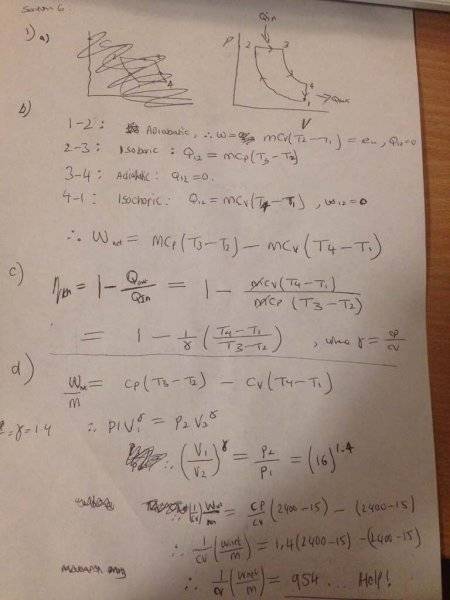 Section 6
1) a)
Qin
P 2 3
4
1 → Qout
V
b)
1-2: Adiabatic, ∴ W = mCv(T2-T1) = eu, Q12=0
2-3: Isobaric: Q12 = mCp(T3-T2)
3-4: Adiabatic: Q12=0.
4-1: Isochoric: Q12 = mCv(T4-T1), W12=0
∴ Wnet = mCp(T3-T2) - mCv(T4-T1)
c) ηth = 1 - Qout/Qin = 1 - mCv(T4-T1)/mCp(T3-T2)
= 1 - 1/γ (T4-T1/T3-T2), where γ = cp/cv
d)
Wnet/m = Cp(T3-T2) - Cv(T4-T1)
= γ = 1.4 ∴ P1V1^γ = P2V2^γ
∴ (V1/V2)^γ = P2/P1 = (16)^1.4
∴ (1/cv) Wnet/m = CP/cv (2400-15) - (2400-15)
∴ 1/cv (Wnet/m) = 1.4(2400-15) - (2400-15)
∴ 1/cv (Wnet/m) = 954 ... Help!